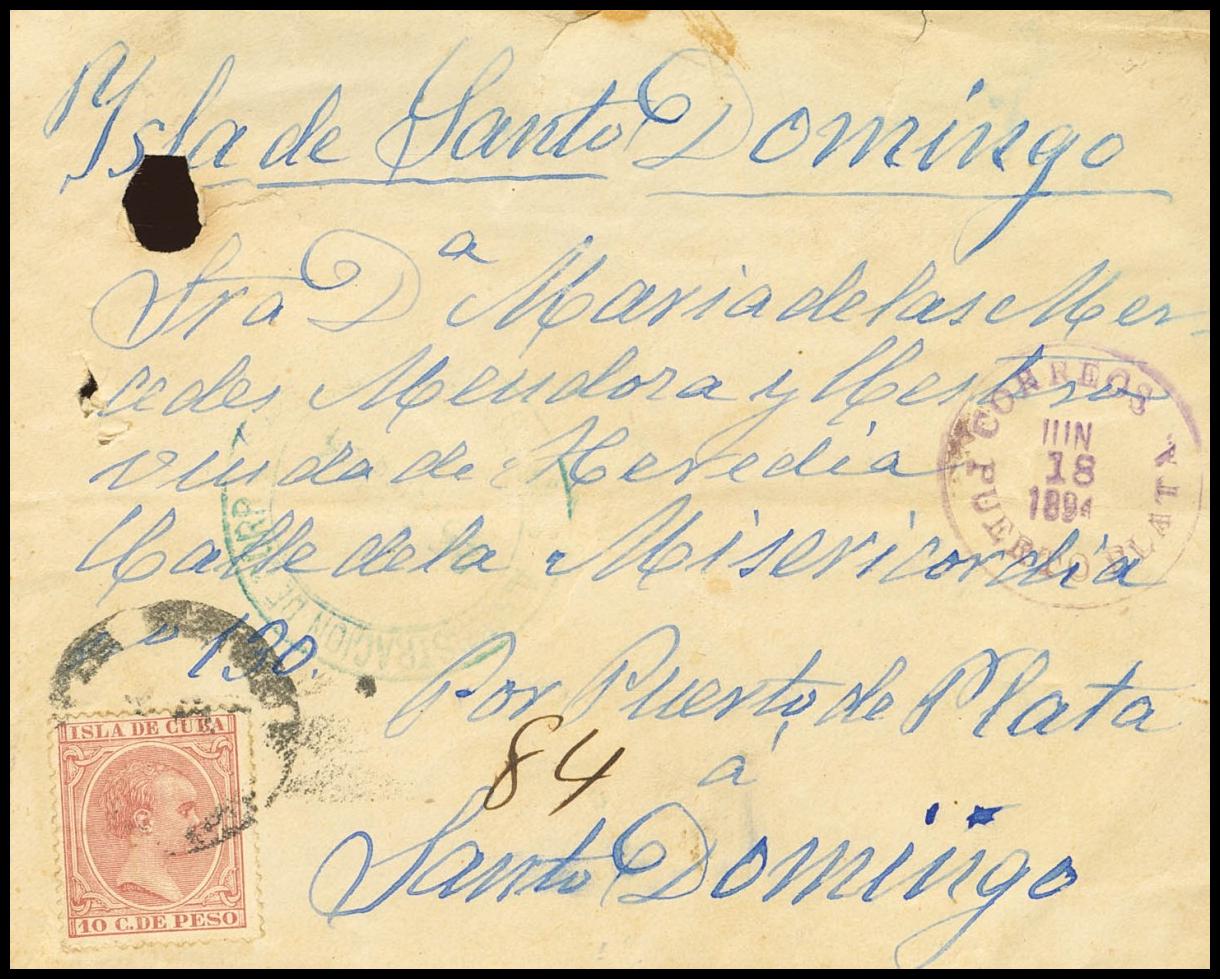 P/ Isla de Santo Domingo
Sra Dª Maria de las Mer-
cedes Mendoza y Mestre
viuda de Heredia
Calle de la Misericordia
nº 130.
Por Puerto de Plata
84
à
Santo Domingo
CORREOS
JUN
18
1894
PUERTO PLATA
STRACION DE
ISLA DE CUBA
10 C. DE PESO